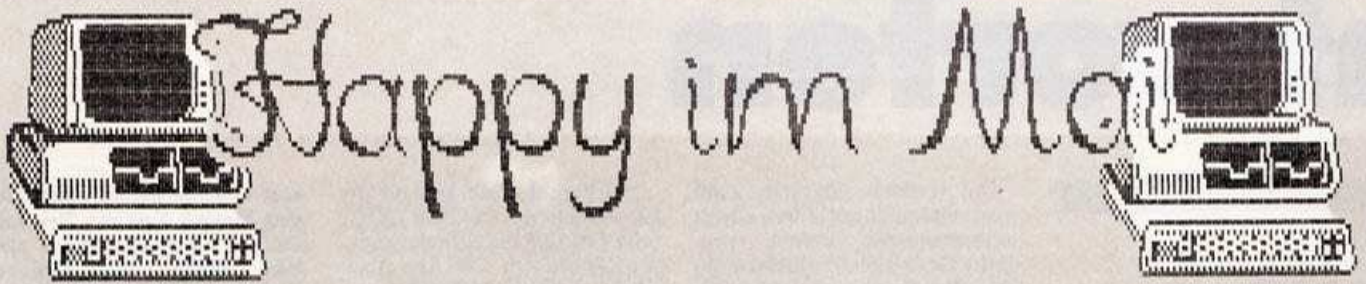 Happy im Mai